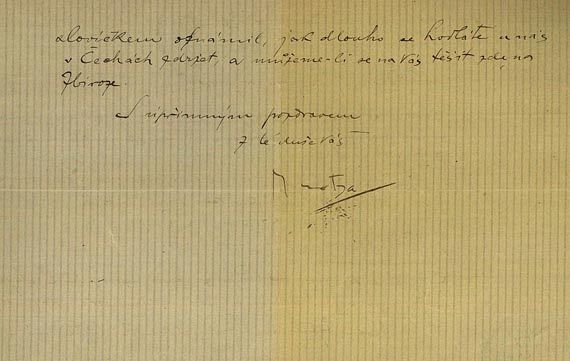 slovíčkem oznámil, jak dlouho se hodláte u nás
v Čechách zdržet, a můžeme-li se na Vás těšit zde na
Zbiroze.
S upřímným pozdravem
z té duše Váš
Mucha